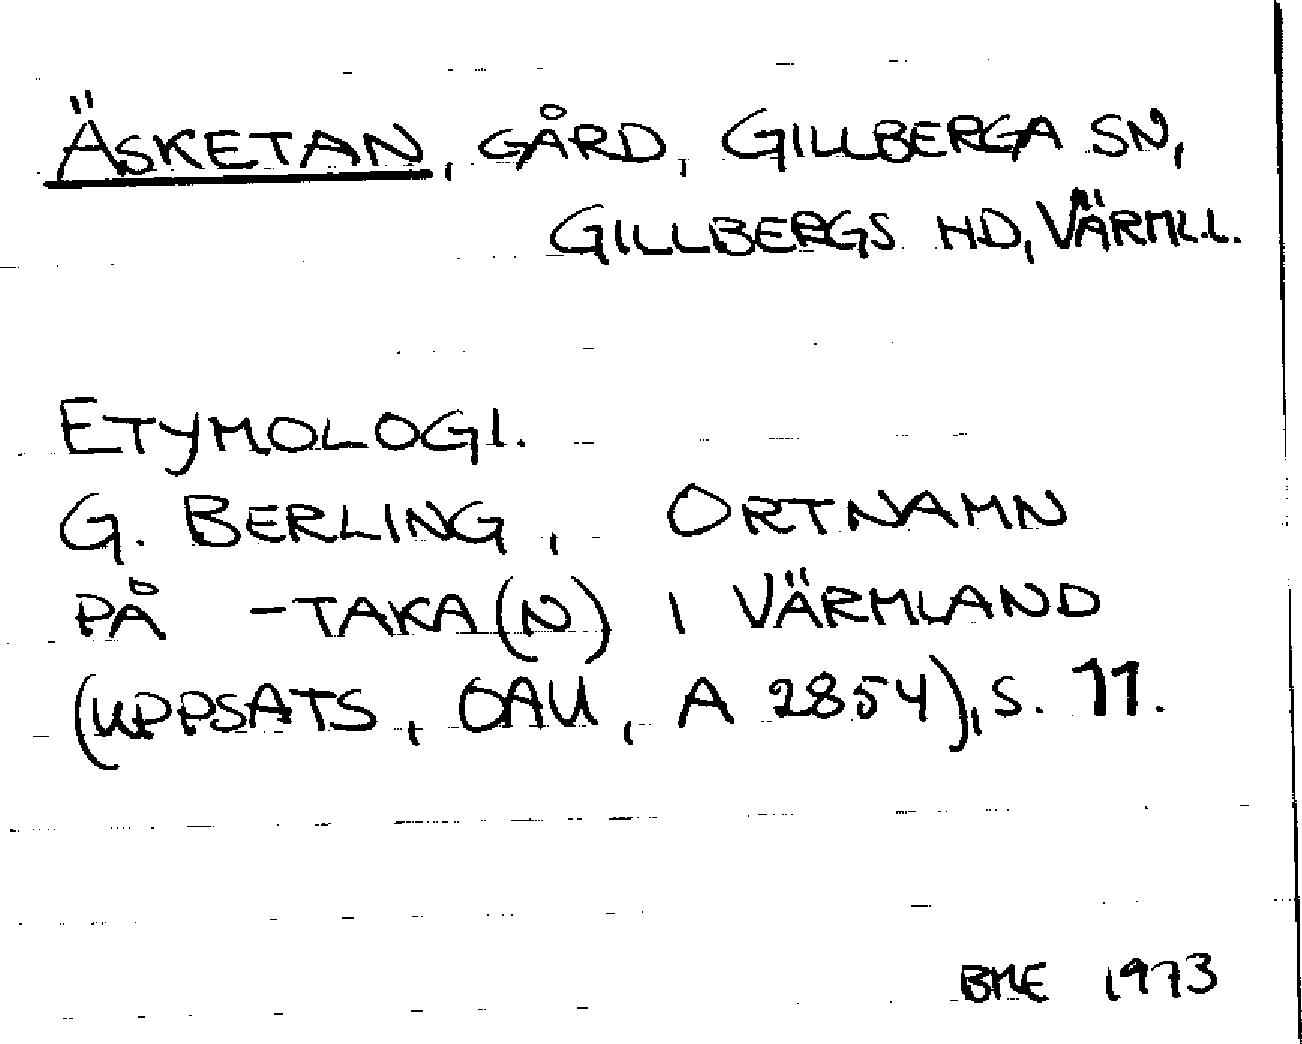 ÄSKETAN, GÅRD, GILLBERGA SN,
GILLBERGS HD, VÄRML.
ETYMOLOGI.
G. BERLING, ORTNAMN
PÅ -TAKA(N) I VÄRMLAND
(UPPSATS, OAU, A 2854), S. 11.
BME 1973